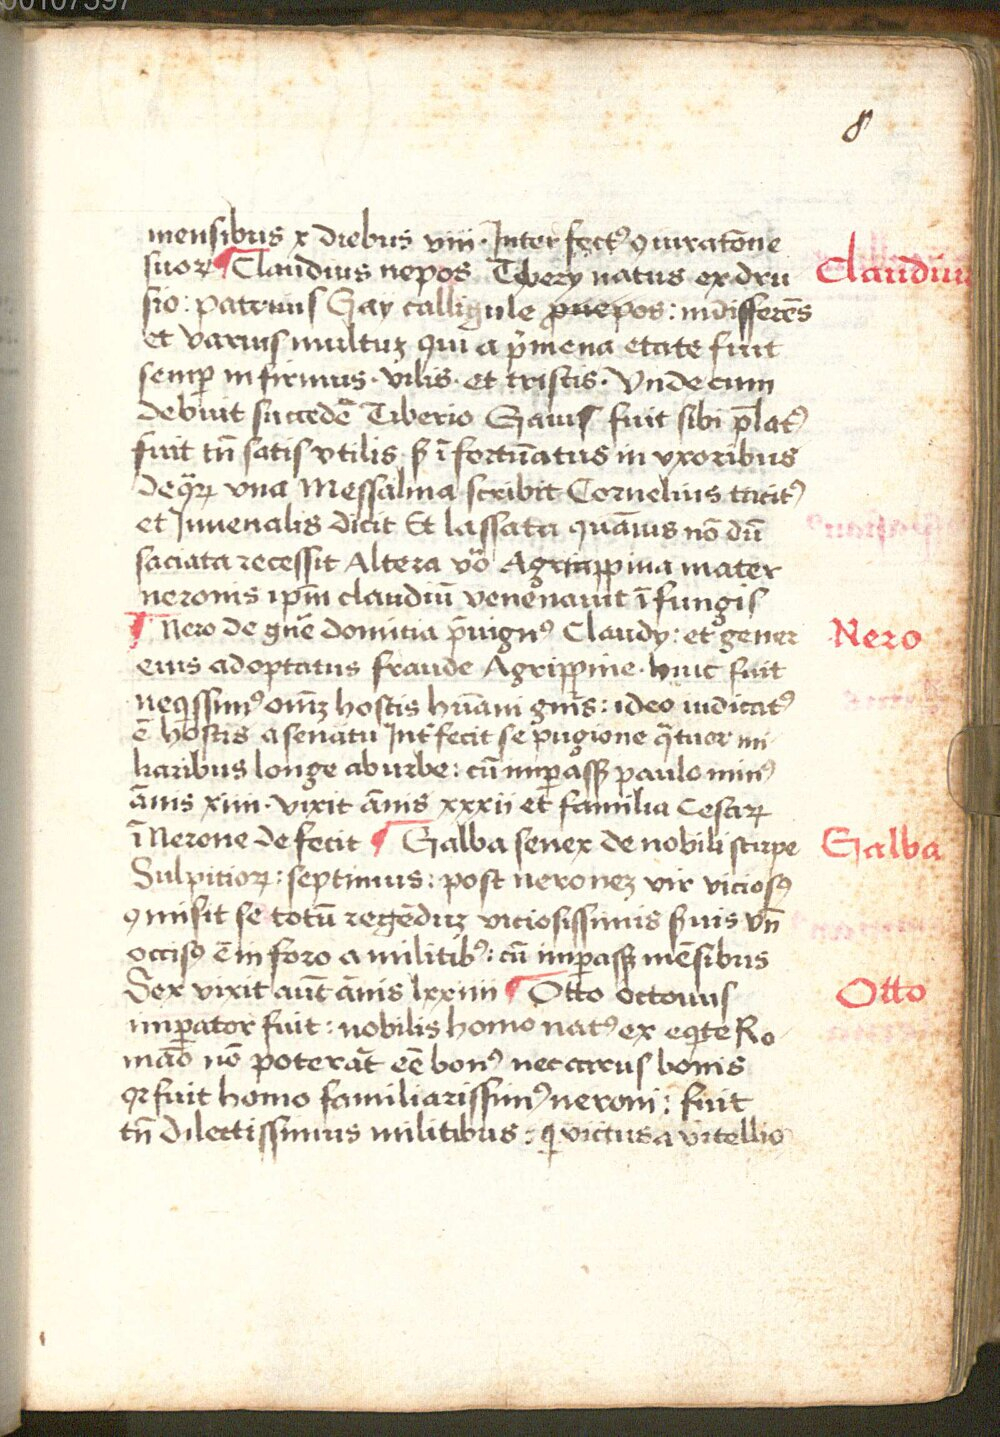 00107397
8
mensibus x diebus viii · Interfectꝰ ꝯiuratōne
suoꝝ ¶ Claudius nepos Tibery natus ex dru
Claudius
sio : patruus Gay calligule ꝓnepos : indifferēs
et varius multuꝫ qui a p̄mena etate fuit
semꝑ infirmus · vilis · et tristis · Vnde cum
debuit succedē Tiberio Gaius fuit sibi p̄latꝰ
fuit tn̄ satis vtilis · ſꝫ īfortūatus in vxoribus
de q̄ꝝ vna Messalina scribit Cornelius tacitꝰ
et Juuenalis dicit Et lassata quāuis nō dū
saciata recessit Altera vō Agrippina mater
neronis ip̄m claudiū venenauit ī fungis
¶ Nero de gn̄e domitia p̄uignꝰ Claudy : et gener
Nero
eius adoptatus fraude Agrippine · huic fuit
neq̄ssimꝰ om̄ꝫ hostis hūani gn̄is : ideo iudicatꝰ
ē hostis a senatu Int̄fecit se pugione q̄tuor mi
liaribus longe ab urbe : cū imꝑassꝫ paulo minꝰ
ānis xiiii · vixit ānis xxxii et familia Cesaꝝ
ī Nerone defecit ¶ Galba senex de nobili stirpe
Galba
Sulpitioꝝ : septimus : post neroneꝫ vir viciosꝰ
ꝯmisit se totū regēduꝫ viciosissimis ſuis vn̄
occisꝰ ē in foro a militibꝰ : cū imꝑassꝫ mēsibus
Sex vixit aūt ānis lxxiiii ¶ Otto octouus
Otto
imꝑator fuit : nobilis homo natꝰ ex eq̄te Ro
māo nō poterāt eē bonꝰ nec carus bonis
qꝛ fuit homo familiarissimꝰ neroni : fuit
tn̄ dilectissimus militibus : ꝗ victus a vitellio